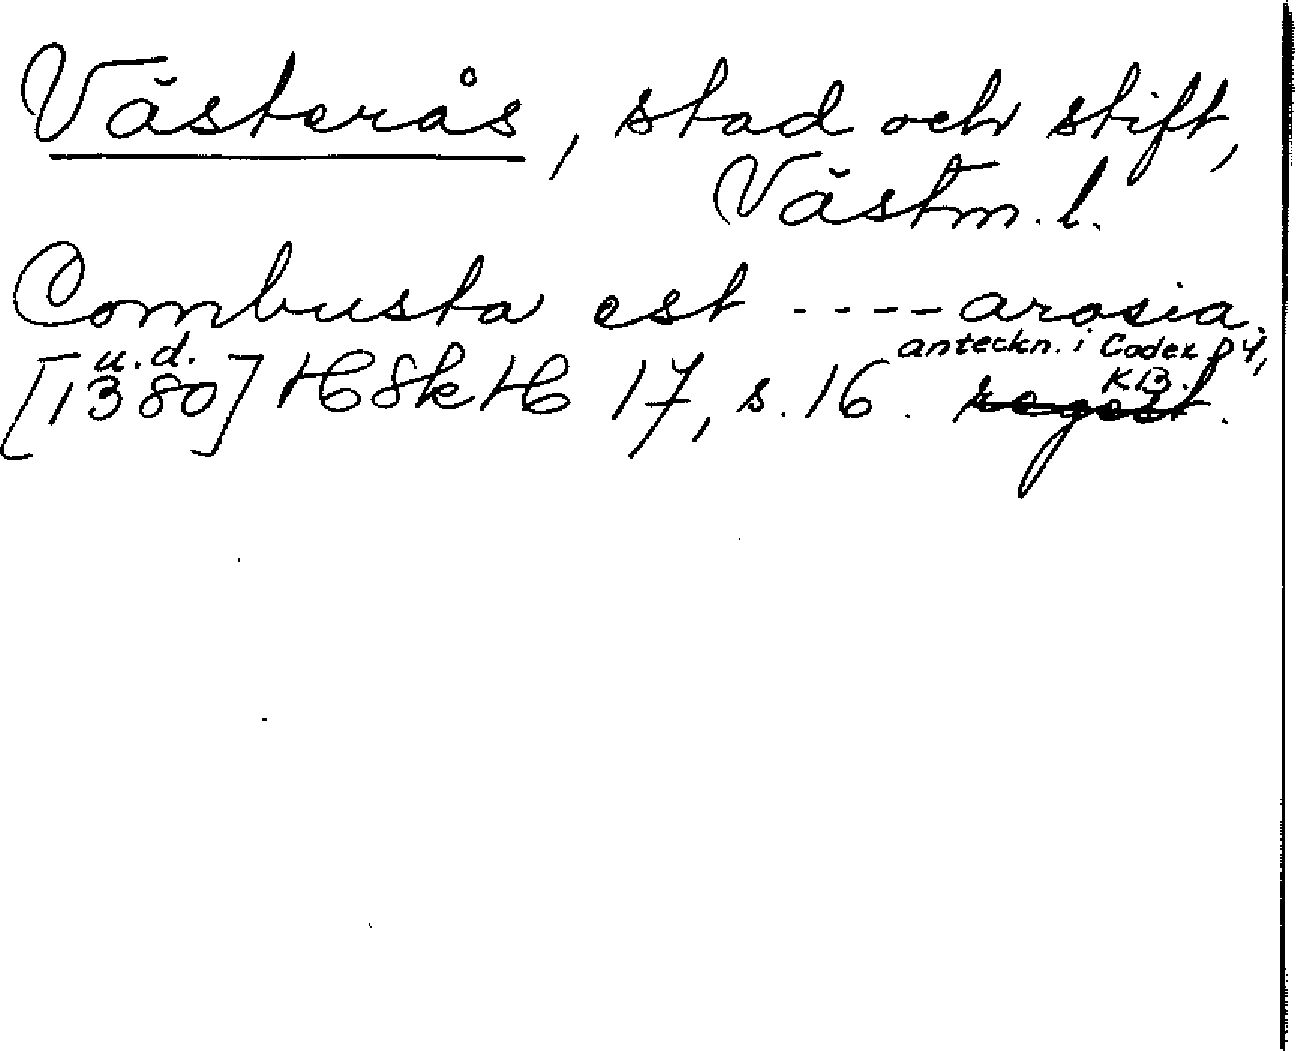 Västerås, stad och stift,
Västm. l.
Combusta est ---- arosia.
u.d. anteckn. i Codex P 4,
[1380] HSkH 17, s. 16. regest. KB.